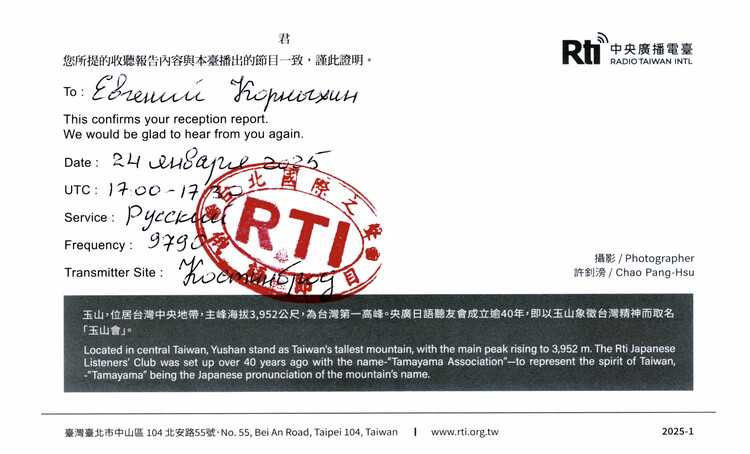 君
您所提的收聽報告內容與本臺播出的節目一致，謹此證明。
Rti 中央廣播電臺
RADIO TAIWAN INTL
To : Евгений Корныхин
This confirms your reception report.
We would be glad to hear from you again.
Date : 24 января 2025
UTC : 17.00-17.30
Service : Русский
Frequency : 9790
Transmitter Site : Костинброд
台北國際之聲
RTI
節目
攝影 / Photographer
許釗滂 / Chao Pang-Hsu
玉山，位居台灣中央地帶，主峰海拔3,952公尺，為台灣第一高峰。央廣日語聽友會成立逾40年，即以玉山象徵台灣精神而取名
「玉山會」。
Located in central Taiwan, Yushan stand as Taiwan's tallest mountain, with the main peak rising to 3,952 m. The Rti Japanese
Listeners' Club was set up over 40 years ago with the name-"Tamayama Association"—to represent the spirit of Taiwan,
-"Tamayama" being the Japanese pronunciation of the mountain's name.
臺灣臺北市中山區 104 北安路55號・No. 55, Bei An Road, Taipei 104, Taiwan | www.rti.org.tw
2025-1